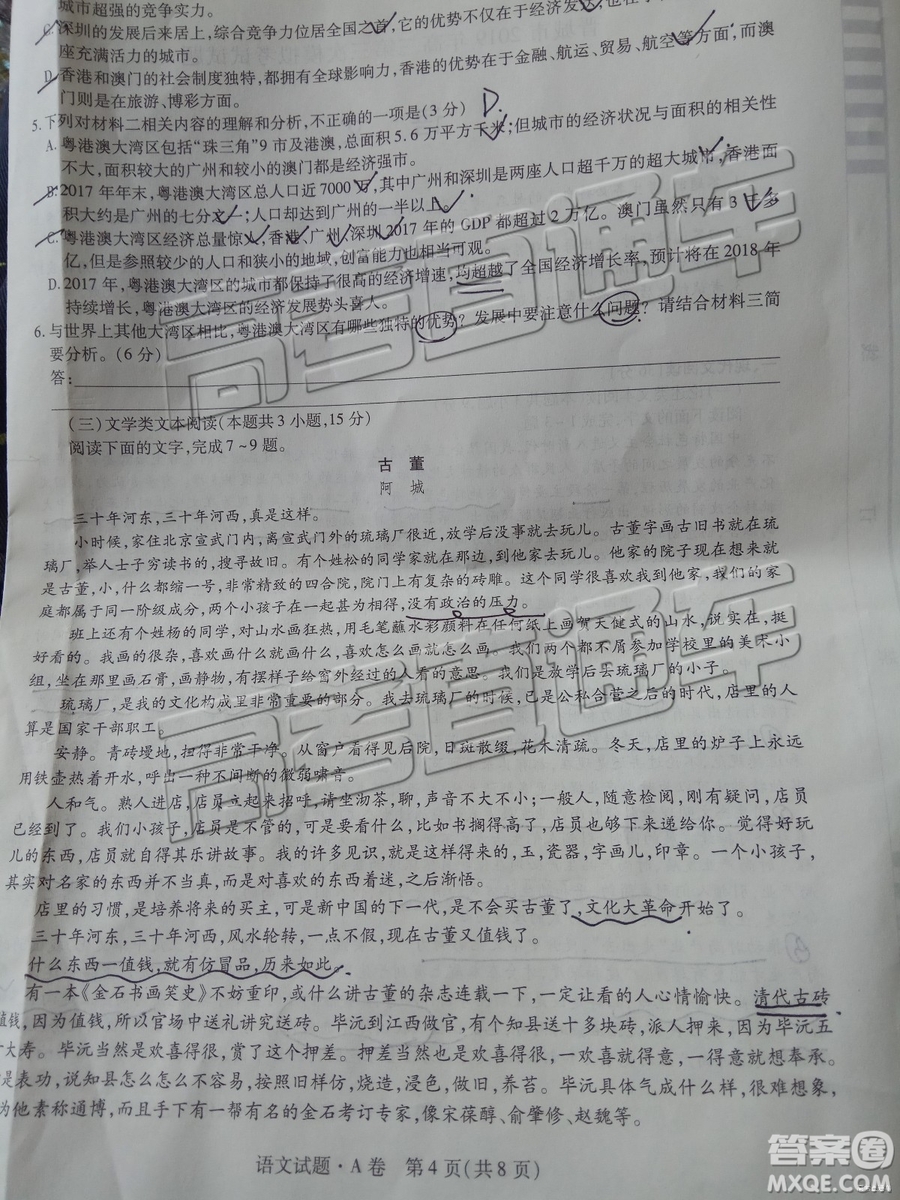 城市超强的竞争实力。
C.深圳的发展后来居上,综合竞争力位居全国之首,它的优势不仅在于经济发达,也在于
座充满活力的城市。
D.香港和澳门的社会制度独特,都拥有全球影响力,香港的优势在于金融、航运、贸易、航空等方面,而澳
门则是在旅游、博彩方面。
5.下列对材料二相关内容的理解和分析,不正确的一项是(3 分) D.
A.粤港澳大湾区包括“珠三角”9 市及港澳,总面积 5.6 万平方千米;但城市的经济状况与面积的相关性
不大,面积较大的广州和较小的澳门都是经济强市。
B.2017 年年末,粤港澳大湾区总人口近 7000 万,其中广州和深圳是两座人口超千万的超大城市,香港面
积大约是广州的七分之一;人口却达到广州的一半以上。
C.粤港澳大湾区经济总量惊人,香港、广州、深圳 2017 年的 GDP 都超过 2 万亿。澳门虽然只有 3 千多
亿,但是参照较少的人口和狭小的地域,创富能力也相当可观。
D.2017 年,粤港澳大湾区的城市都保持了很高的经济增速,均超越了全国经济增长率,预计将在 2018 年
持续增长,粤港澳大湾区的经济发展势头喜人。
6.与世界上其他大湾区相比,粤港澳大湾区有哪些独特的优势?发展中要注意什么问题?请结合材料三简
要分析。(6 分)
答:
(三)文学类文本阅读(本题共 3 小题,15 分)
阅读下面的文字,完成 7~9 题。
古 董
阿 城
三十年河东,三十年河西,真是这样。
小时候,家住北京宣武门内,离宣武门外的琉璃厂很近,放学后没事就去玩儿。古董字画古旧书就在琉
璃厂,举人士子穷读书的,搜寻故旧。有个姓松的同学家就在那边,到他家会穿琉璃厂。他家的院子现在想来就
是古董,小,什么都缩一号,非常精致的四合院,院门上有复杂的砖雕。这个同学很喜欢我到他家,我们的家
庭都属于同一阶级成分,两个小孩子在一起甚为相得,没有政治的压力。
班上还有个姓杨的同学,对山水画狂热,用毛笔蘸水彩颜料在任何纸上画贺天健式的山水,说实在,挺
好看的。我画的很杂,喜欢画什么就画什么,喜欢怎么画就怎么画。我们两个都不屑参加学校里的美术小
组,坐在那里画石膏,画静物,有摆样子给窗外经过的人看的意思。我们是放学后去琉璃厂的小子。
琉璃厂,是我的文化构成里非常重要的部分。我去琉璃厂的时候,已是公私合营之后的时代,店里的人
算是国家干部职工。
安静。青砖墁地,担得非常干净。从窗户看得见后院,日斑散缀,花木清疏。冬天,店里的炉子上永远
用铁壶热着开水,呼出一种不间断的微弱啸音。
人和气。熟人进店,店员立起来招呼,请坐沏茶,聊,声音不大不小;一般人,随意检阅,刚有疑问,店员
已经到了。我们小孩子,店员是不管的,可是要看什么,比如书搁得高了,店员也都够下来递给你。觉得好玩
儿的东西,店员就自得其乐讲故事。我的许多见识,就是这样得来的,玉,瓷器,字画儿,印章。一个小孩子,
其实对名家的东西并不当真,而是对喜欢的东西着迷,之后渐悟。
店里的习惯,是培养将来的买主,可是新中国的下一代,是不会买古董了,文化大革命开始了。
三十年河东,三十年河西,风水轮转,一点不假,现在古董又值钱了。
什么东西一值钱,就有仿冒品,历来如此。
有一本《金石书画笑史》不妨重印,或什么讲古董的杂志连载一下,一定让看的人心情愉快。清代古砖
值钱,因为值钱,所以官场中送礼讲究送砖。毕沅到江西做官,有个知县送十多块砖,派人押来,因为毕沅五
大寿。毕沅当然是欢喜得很,赏了这个押差。押差当然也欢喜得很,一欢喜就要得意,一得意就想奉承。
是表功,说知县怎么怎么不容易,按照旧样仿,烧造,浸色,做旧,养苔。毕沅具体气成什么样,很难想象,
为他素称通博,而且手下有一帮有名的金石考订专家,像宋葆醇、俞肇修、赵魏等。
语文试题·A 卷 第 4 页(共 8 页)
高考直通车
高考直通车
答案圈
MXQE.COM